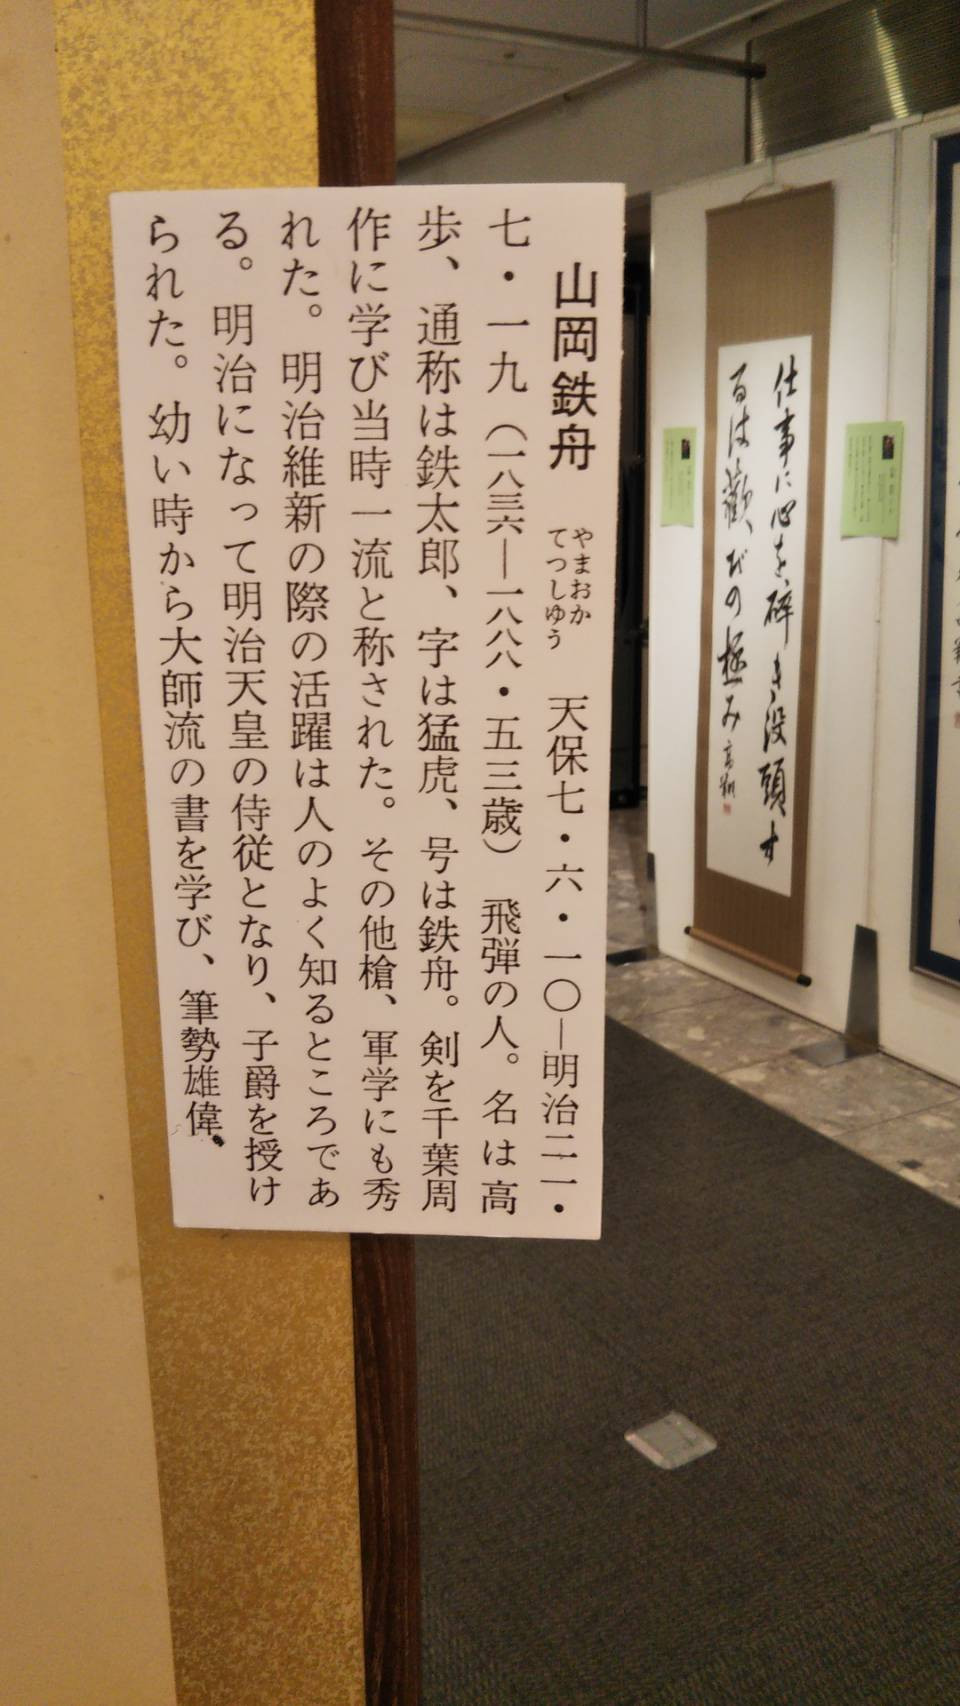 山岡鉄舟 やまおか てつしゆう 天保七・六・一〇―明治二一・
七・一九(一八三六―一八八八・五三歳) 飛弾の人。名は高
歩、通称は鉄太郎、字は猛虎、号は鉄舟。剣を千葉周
作に学び当時一流と称された。その他槍、軍学にも秀
れた。明治維新の際の活躍は人のよく知るところであ
る。明治になって明治天皇の侍従となり、子爵を授け
られた。幼い時から大師流の書を学び、筆勢雄偉。
仕事に心を砕き没頭す
るは歓びの極み